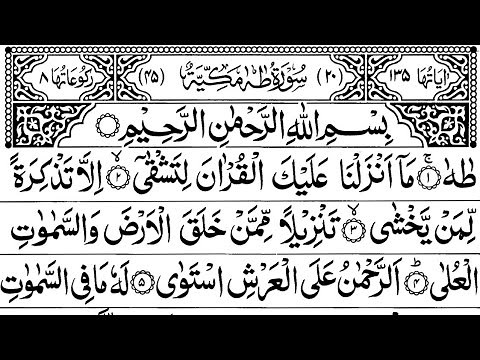 اٰيَاتُهَا ١٣٥ (٢٠) سُوْرَةُ طٰهٰ مَكِّيَّةٌ (٤٥) رُكُوْعَاتُهَا ٨
بِسْمِ اللّٰهِ الرَّحْمٰنِ الرَّحِيْمِ
طٰهٰ ۚ﴿١﴾ مَاۤ اَنْزَلْنَا عَلَيْكَ الْقُرْاٰنَ لِتَشْقٰۤى ۙ﴿٢﴾ اِلَّا تَذْكِرَةً
لِّمَنْ يَّخْشٰى ۙ﴿٣﴾ تَنْزِيْلًا مِّمَّنْ خَلَقَ الْاَرْضَ وَالسَّمٰوٰتِ
الْعُلٰى ؕ﴿٤﴾ اَلرَّحْمٰنُ عَلَى الْعَرْشِ اسْتَوٰى ﴿٥﴾ لَهٗ مَا فِى السَّمٰوٰتِ